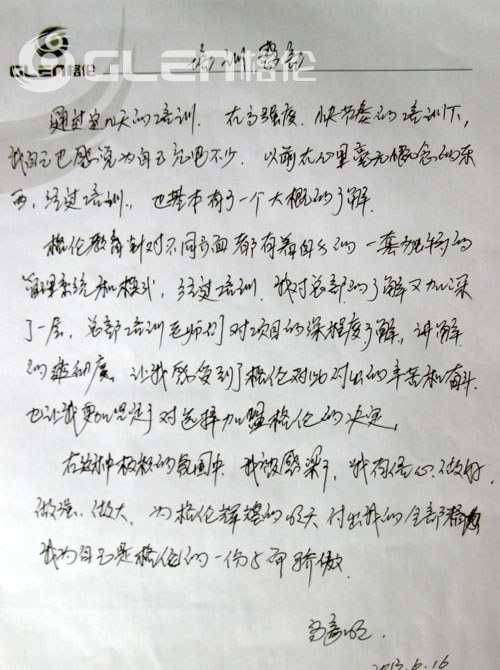 GLEN格伦
GLEN格伦
培训感言
通过这几天的培训,在高强度、快节奏的培训下,
我自己也感觉为自己充电不少。以前在心里毫无概念的东
西,经过培训,也基本有了一个大概的了解。
格伦教育针对不同方面都有着自己的一套独特的
管理系统和模式,经过培训,我对总部的了解又加深
了一层,总部培训老师们对项目的深程度了解,讲解
的透彻度,让我感受到了格伦对此付出的辛苦和奋斗.
也让我更加坚定了对选择加盟格伦的决定。
在这种积极的氛围中,我被感染了,我有信心做好,
做强、做大,为格伦辉煌的明天付出我的全部精力
我为自己是格伦的一份子而骄傲.
2013.6.16